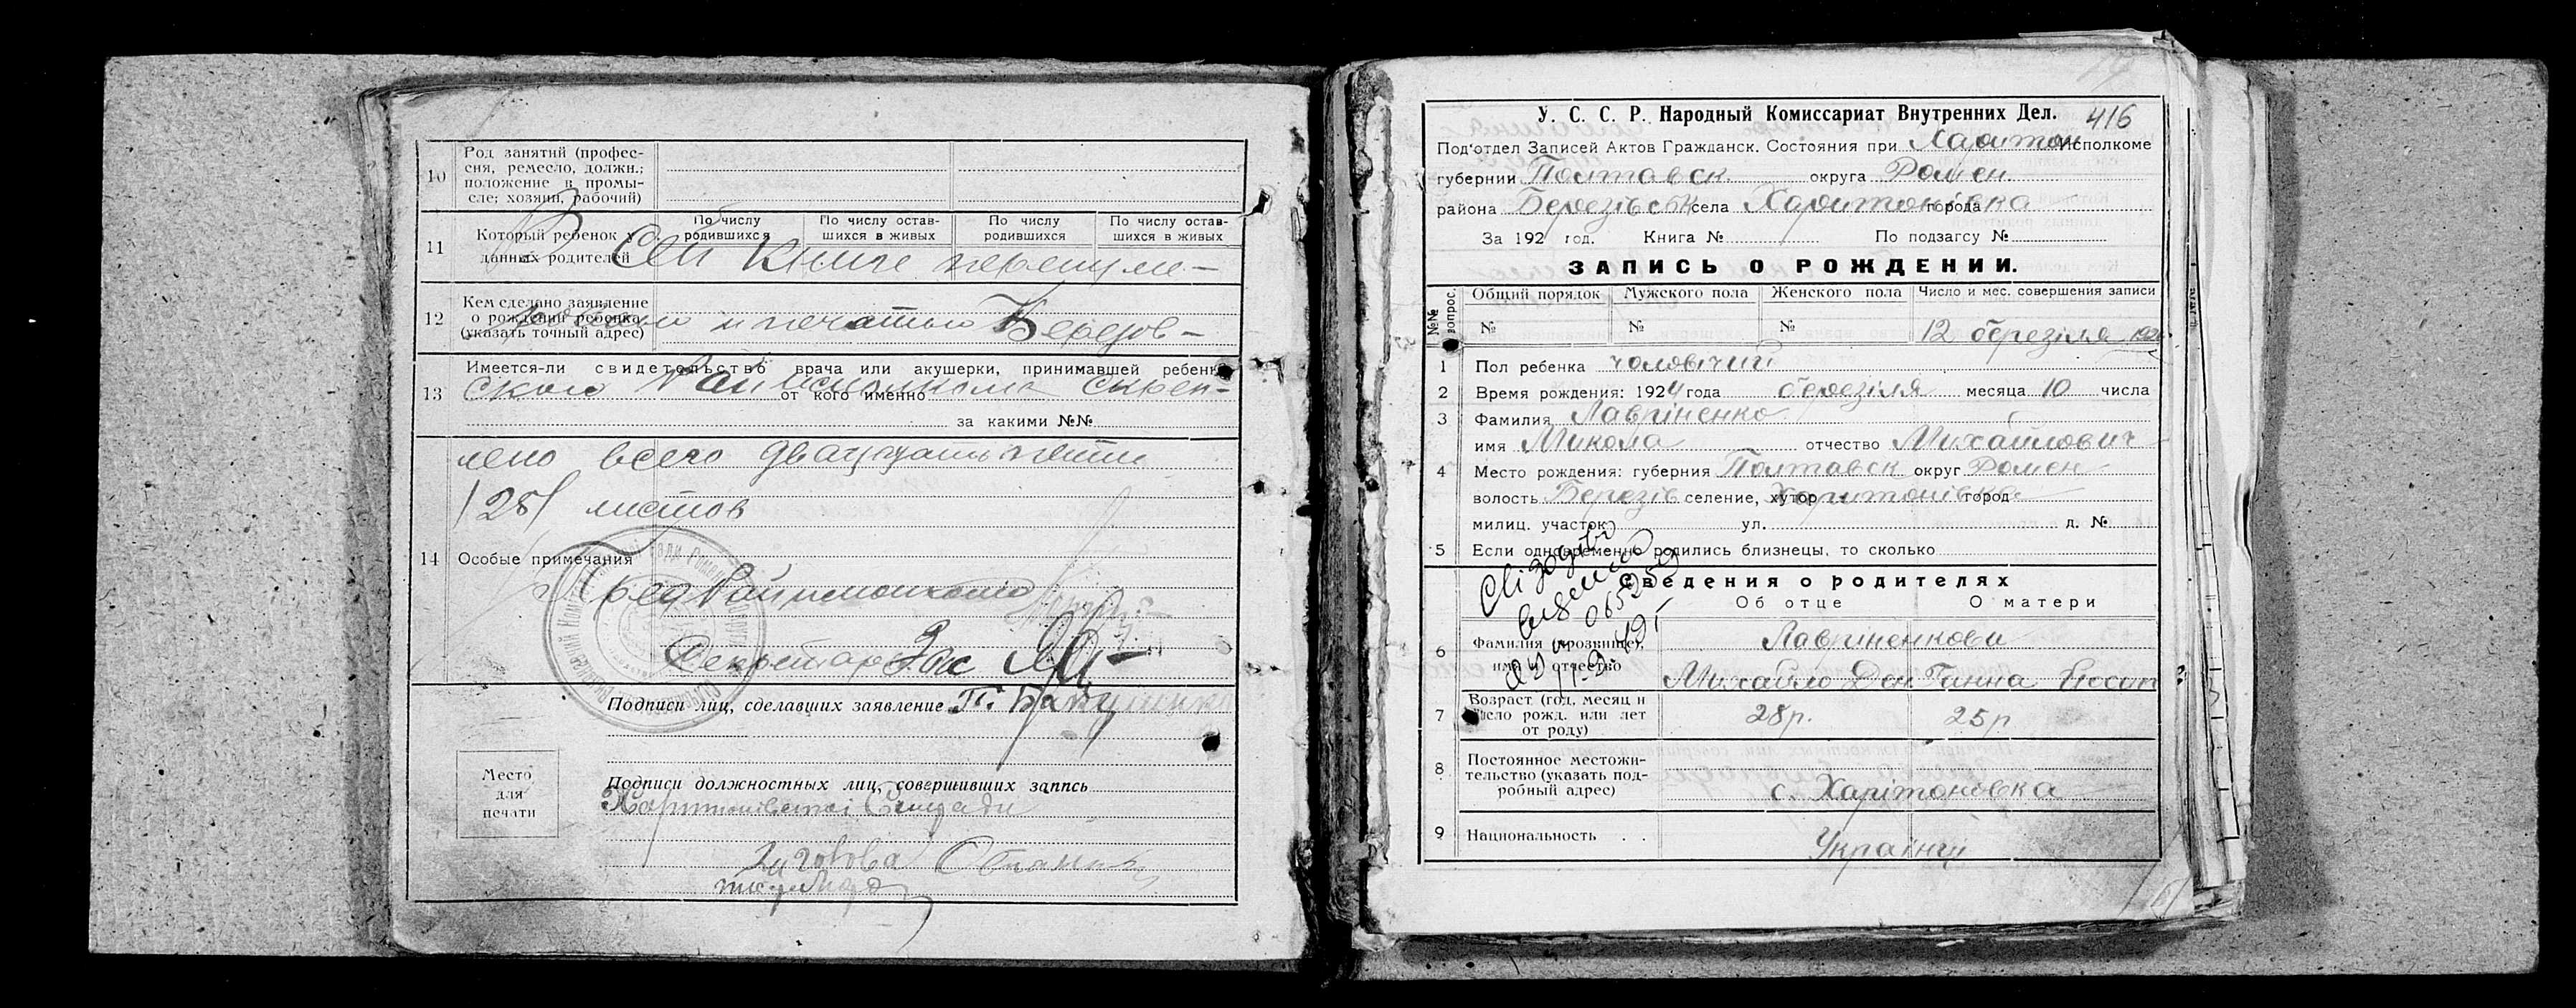 10 Род занятий (профес-
сия, ремесло, должн.;
положение в промы-
сле; хозяин, рабочий)
По числу родившихся По числу остав-шихся в живых По числу родившихся По числу остав-шихся в живых
11 Который ребенок у
данных родителей
В сей книге пронуме-
12 Кем сделано заявление
о рождении ребенка
(указать точный адрес)
и печатью Березов-
13 Имеется-ли свидетельство врача или акушерки, принимавшей ребенка
ского Райисполкома скреп-
от кого именно
за какими №№
лено всего двадцать пять
/25/ листов
14 Особые примечания
Пред Райисполкома
Секретарь
Подписи лиц, сделавших заявление
Место
для
печати
Подписи должностных лиц, совершивших запись
Харитонівської Сільради
У. С. С. Р. Народный Комиссариат Внутренних Дел. 416
Под'отдел Записей Актов Гражданск. Состояния при Харитон Исполкоме
губернии Полтавск округа Ромен
района Березівськ села Харитонівка города
За 192 год. Книга № По подзагсу №
ЗАПИСЬ О РОЖДЕНИИ.
№№ вопрос. Общий порядок Мужского пола Женского пола Число и мес. совершения записи
№ № № 12 березіля 192
1 Пол ребенка чоловічий
2 Время рождения: 1924 года березіля месяца 10 числа
3 Фамилия Лавріненко
имя Микола отчество Михайлович
4 Место рождения: губерния Полтавск округ Ромен
волость Березів селение, хутор Харитонівка город
милиц. участок ул. д. №
5 Если одновременно родились близнецы, то сколько
Свідоцтво
видано
Сведения о родителях
Об отце О матери
6 Фамилия (прозвище),
имя и отчество
Лавріненкови
Михайло Ганна
7 Возраст (год, месяц и
число рожд. или лет
от роду)
28р. 25р
8 Постоянное местожи-
тельство (указать под-
робный адрес)
с. Харітоновка
9 Национальность . .
Українці